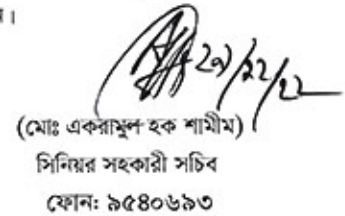 ।
২৯/১২/২২
(মোঃ একরামুল হক শামীম)
সিনিয়র সহকারী সচিব
ফোন: ৯৫৪০৬৯৩